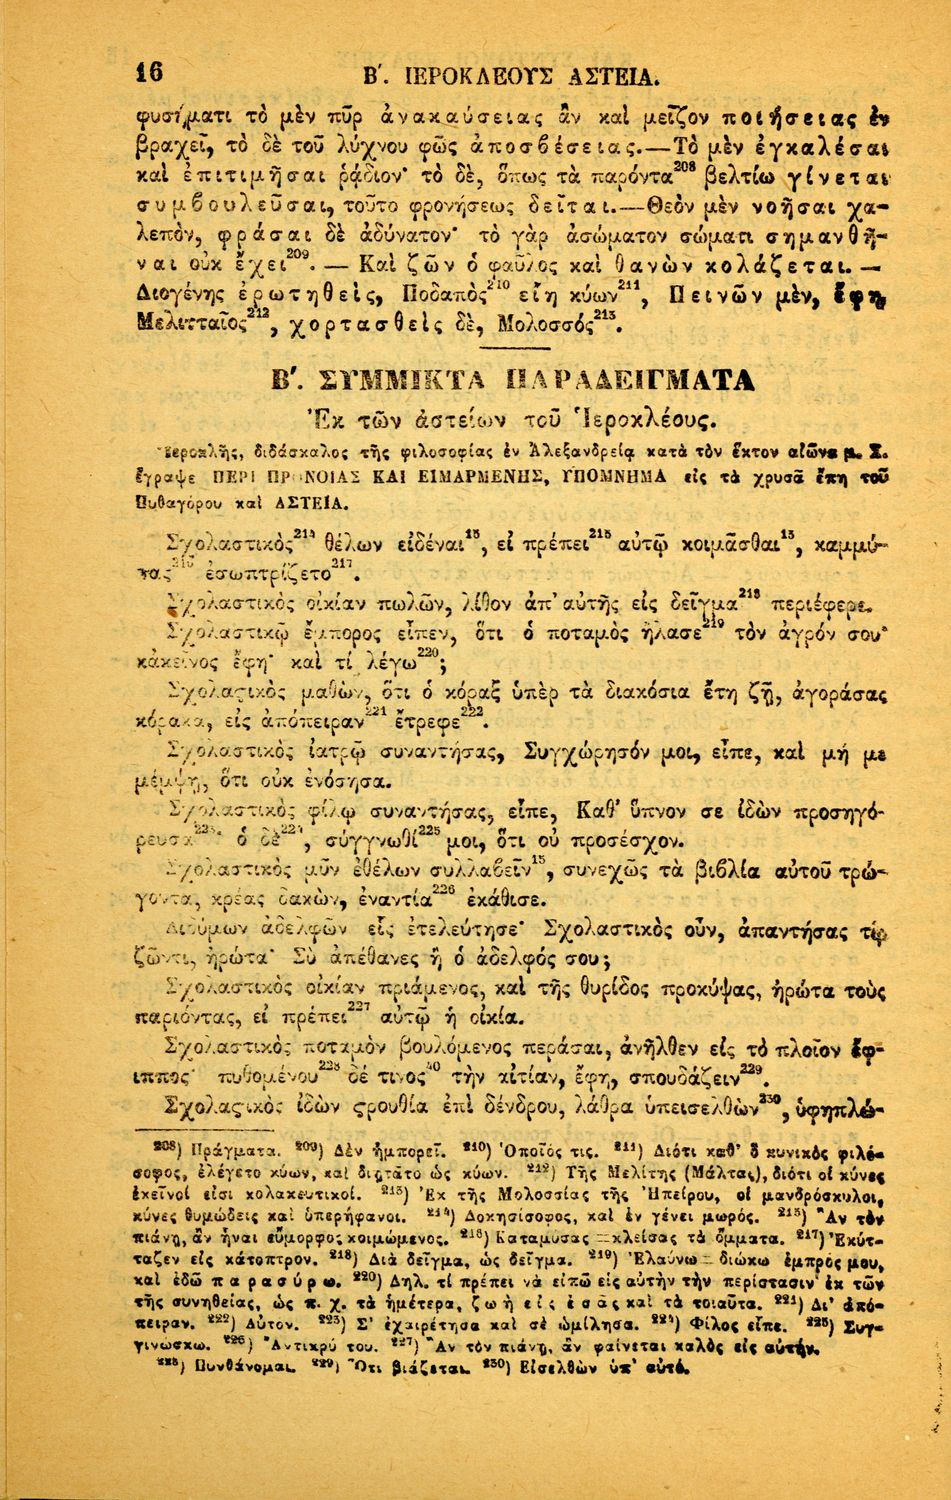 16 Β΄. ΙΕΡΟΚΛΕΟΥΣ ΑΣΤΕΙΑ.
φυσήματι τὸ μὲν πῦρ ἀνακαύσειας ἂν καὶ μεῖζον ποιήσειας ἐν
βραχεῖ, τὸ δὲ τοῦ λύχνου φῶς ἀποσβέσειας.—Τὸ μὲν ἐγκαλέσαι
καὶ ἐπιτιμῆσαι ῥᾴδιον· τὸ δὲ, ὅπως τὰ παρόντα²⁰⁸ βελτίω γίνεται
συμβουλεῦσαι, τοῦτο φρονήσεως δεῖται.—Θεὸν μὲν νοῆσαι χα-
λεπὸν, φράσαι δὲ ἀδύνατον· τὸ γὰρ ἀσώματον σώματι σημανθῆ-
ναι οὐκ ἔχει²⁰⁹. — Καὶ ζῶν ὁ φαῦλος καὶ θανὼν κολάζεται. —
Διογένης ἐρωτηθεὶς, Ποδαπὸς²¹⁰ εἴη κύων²¹¹, Πεινῶν μὲν, ἔφη,
Μελιτταῖος²¹², χορτασθεὶς δὲ, Μολοσσός²¹³.
Β΄. ΣΥΜΜΙΚΤΑ ΠΑΡΑΔΕΙΓΜΑΤΑ
Ἐκ τῶν ἀστείων τοῦ Ἱεροκλέους.
Ἱεροκλῆς, διδάσκαλος τῆς φιλοσοφίας ἐν Ἀλεξανδρείᾳ κατὰ τὸν ἕκτον αἰῶνα μ. Χ.
ἔγραψε ΠΕΡΙ ΠΡΟΝΟΙΑΣ ΚΑΙ ΕΙΜΑΡΜΕΝΗΣ, ΥΠΟΜΝΗΜΑ εἰς τὰ χρυσᾶ ἔπη τοῦ
Πυθαγόρου καὶ ΑΣΤΕΙΑ.
Σχολαστικὸς²¹⁴ θέλων εἰδέναι¹⁵, εἰ πρέπει²¹⁵ αὐτῷ κοιμᾶσθαι¹⁵, καμμύ-
σας²¹⁶ ἐσωπτρίζετο²¹⁷.
Σχολαστικὸς οἰκίαν πωλῶν, λίθον ἀπ' αὐτῆς εἰς δεῖγμα²¹⁸ περιέφερε.
Σχολαστικῷ ἔμπορος εἶπεν, ὅτι ὁ ποταμὸς ἤλασε²¹⁹ τὸν ἀγρόν σου·
κἀκεῖνος ἔφη· καὶ τί λέγω²²⁰;
Σχολαστικὸς μαθὼν, ὅτι ὁ κόραξ ὑπὲρ τὰ διακόσια ἔτη ζῇ, ἀγοράσας
κόρακα, εἰς ἀπόπειραν²²¹ ἔτρεφε²²².
Σχολαστικὸς ἰατρῷ συναντήσας, Συγχώρησόν μοι, εἶπε, καὶ μή με
μέμψῃ, ὅτι οὐκ ἐνόσησα.
Σχολαστικὸς φίλῳ συναντήσας, εἶπε, Καθ' ὕπνον σε ἰδὼν προσηγό-
ρευσα²²³· ὁ δὲ²²⁴, σύγγνωθί²²⁵ μοι, ὅτι οὐ προσέσχον.
Σχολαστικὸς μῦν ἐθέλων συλλαβεῖν¹⁵, συνεχῶς τὰ βιβλία αὐτοῦ τρώ-
γοντα, κρέας δακὼν, ἐναντία²²⁶ ἐκάθισε.
Διδύμων ἀδελφῶν εἷς ἐτελεύτησε· Σχολαστικὸς οὖν, ἀπαντήσας τῷ
ζῶντι, ἠρώτα· Σὺ ἀπέθανες ἢ ὁ ἀδελφός σου;
Σχολαστικὸς οἰκίαν πριάμενος, καὶ τῆς θυρίδος προκύψας, ἠρώτα τοὺς
παριόντας, εἰ πρέπει²²⁷ αὐτῷ ἡ οἰκία.
Σχολαστικὸς ποταμὸν βουλόμενος περάσαι, ἀνῆλθεν εἰς τὸ πλοῖον ἔφ-
ιππος· πυθομένου²²⁸ δέ τινος⁴⁰ τὴν αἰτίαν, ἔφη, σπουδάζειν²²⁹.
Σχολαστικὸς ἰδὼν στρουθία ἐπὶ δένδρου, λάθρα ὑπεισελθὼν²³⁰, ὑφηπλώ-
²⁰⁸) Πράγματα. ²⁰⁹) Δὲν ἠμπορεῖ. ²¹⁰) Ὁποῖός τις. ²¹¹) Διότι καθ' ὃ κυνικὸς φιλό-
σοφος, ἐλέγετο κύων, καὶ διῃτᾶτο ὡς κύων. ²¹²) Τῆς Μελίτης (Μάλτας), διότι οἱ κύνες
ἐκεῖνοί εἰσι κολακευτικοί. ²¹³) Ἐκ τῆς Μολοσσίας τῆς Ἠπείρου, οἱ μανδρόσκυλοι,
κύνες θυμώδεις καὶ ὑπερήφανοι. ²¹⁴) Δοκησίσοφος, καὶ ἐν γένει μωρός. ²¹⁵) Ἂν τὸν
πιάνῃ, ἂν ἦναι εὔμορφος κοιμώμενος. ²¹⁶) Καταμύσας = κλείσας τὰ ὄμματα. ²¹⁷) Ἐκύτ-
ταζεν εἰς κάτοπτρον. ²¹⁸) Διὰ δεῖγμα, ὡς δεῖγμα. ²¹⁹) Ἐλαύνω = διώκω ἐμπρός μου,
καὶ ἐδῶ παρασύρω. ²²⁰) Δηλ. τί πρέπει νὰ εἰπῶ εἰς αὐτὴν τὴν περίστασιν ἐκ τῶν
τῆς συνηθείας, ὡς π. χ. τὰ ἡμέτερα, ζωὴ εἰς ἐσᾶς καὶ τὰ τοιαῦτα. ²²¹) Δι' ἀπό-
πειραν. ²²²) Αὐτόν. ²²³) Σ' ἐχαιρέτησα καὶ σὲ ὡμίλησα. ²²⁴) Φίλος εἶπε. ²²⁵) Συγ-
γινώσκω. ²²⁶) Ἀντικρύ του. ²²⁷) Ἂν τὸν πιάνῃ, ἂν φαίνεται καλὸς εἰς αὐτήν.
²²⁸) Πυνθάνομαι. ²²⁹) Ὅτι βιάζεται. ²³⁰) Εἰσελθὼν ὑπ' αὐτό.